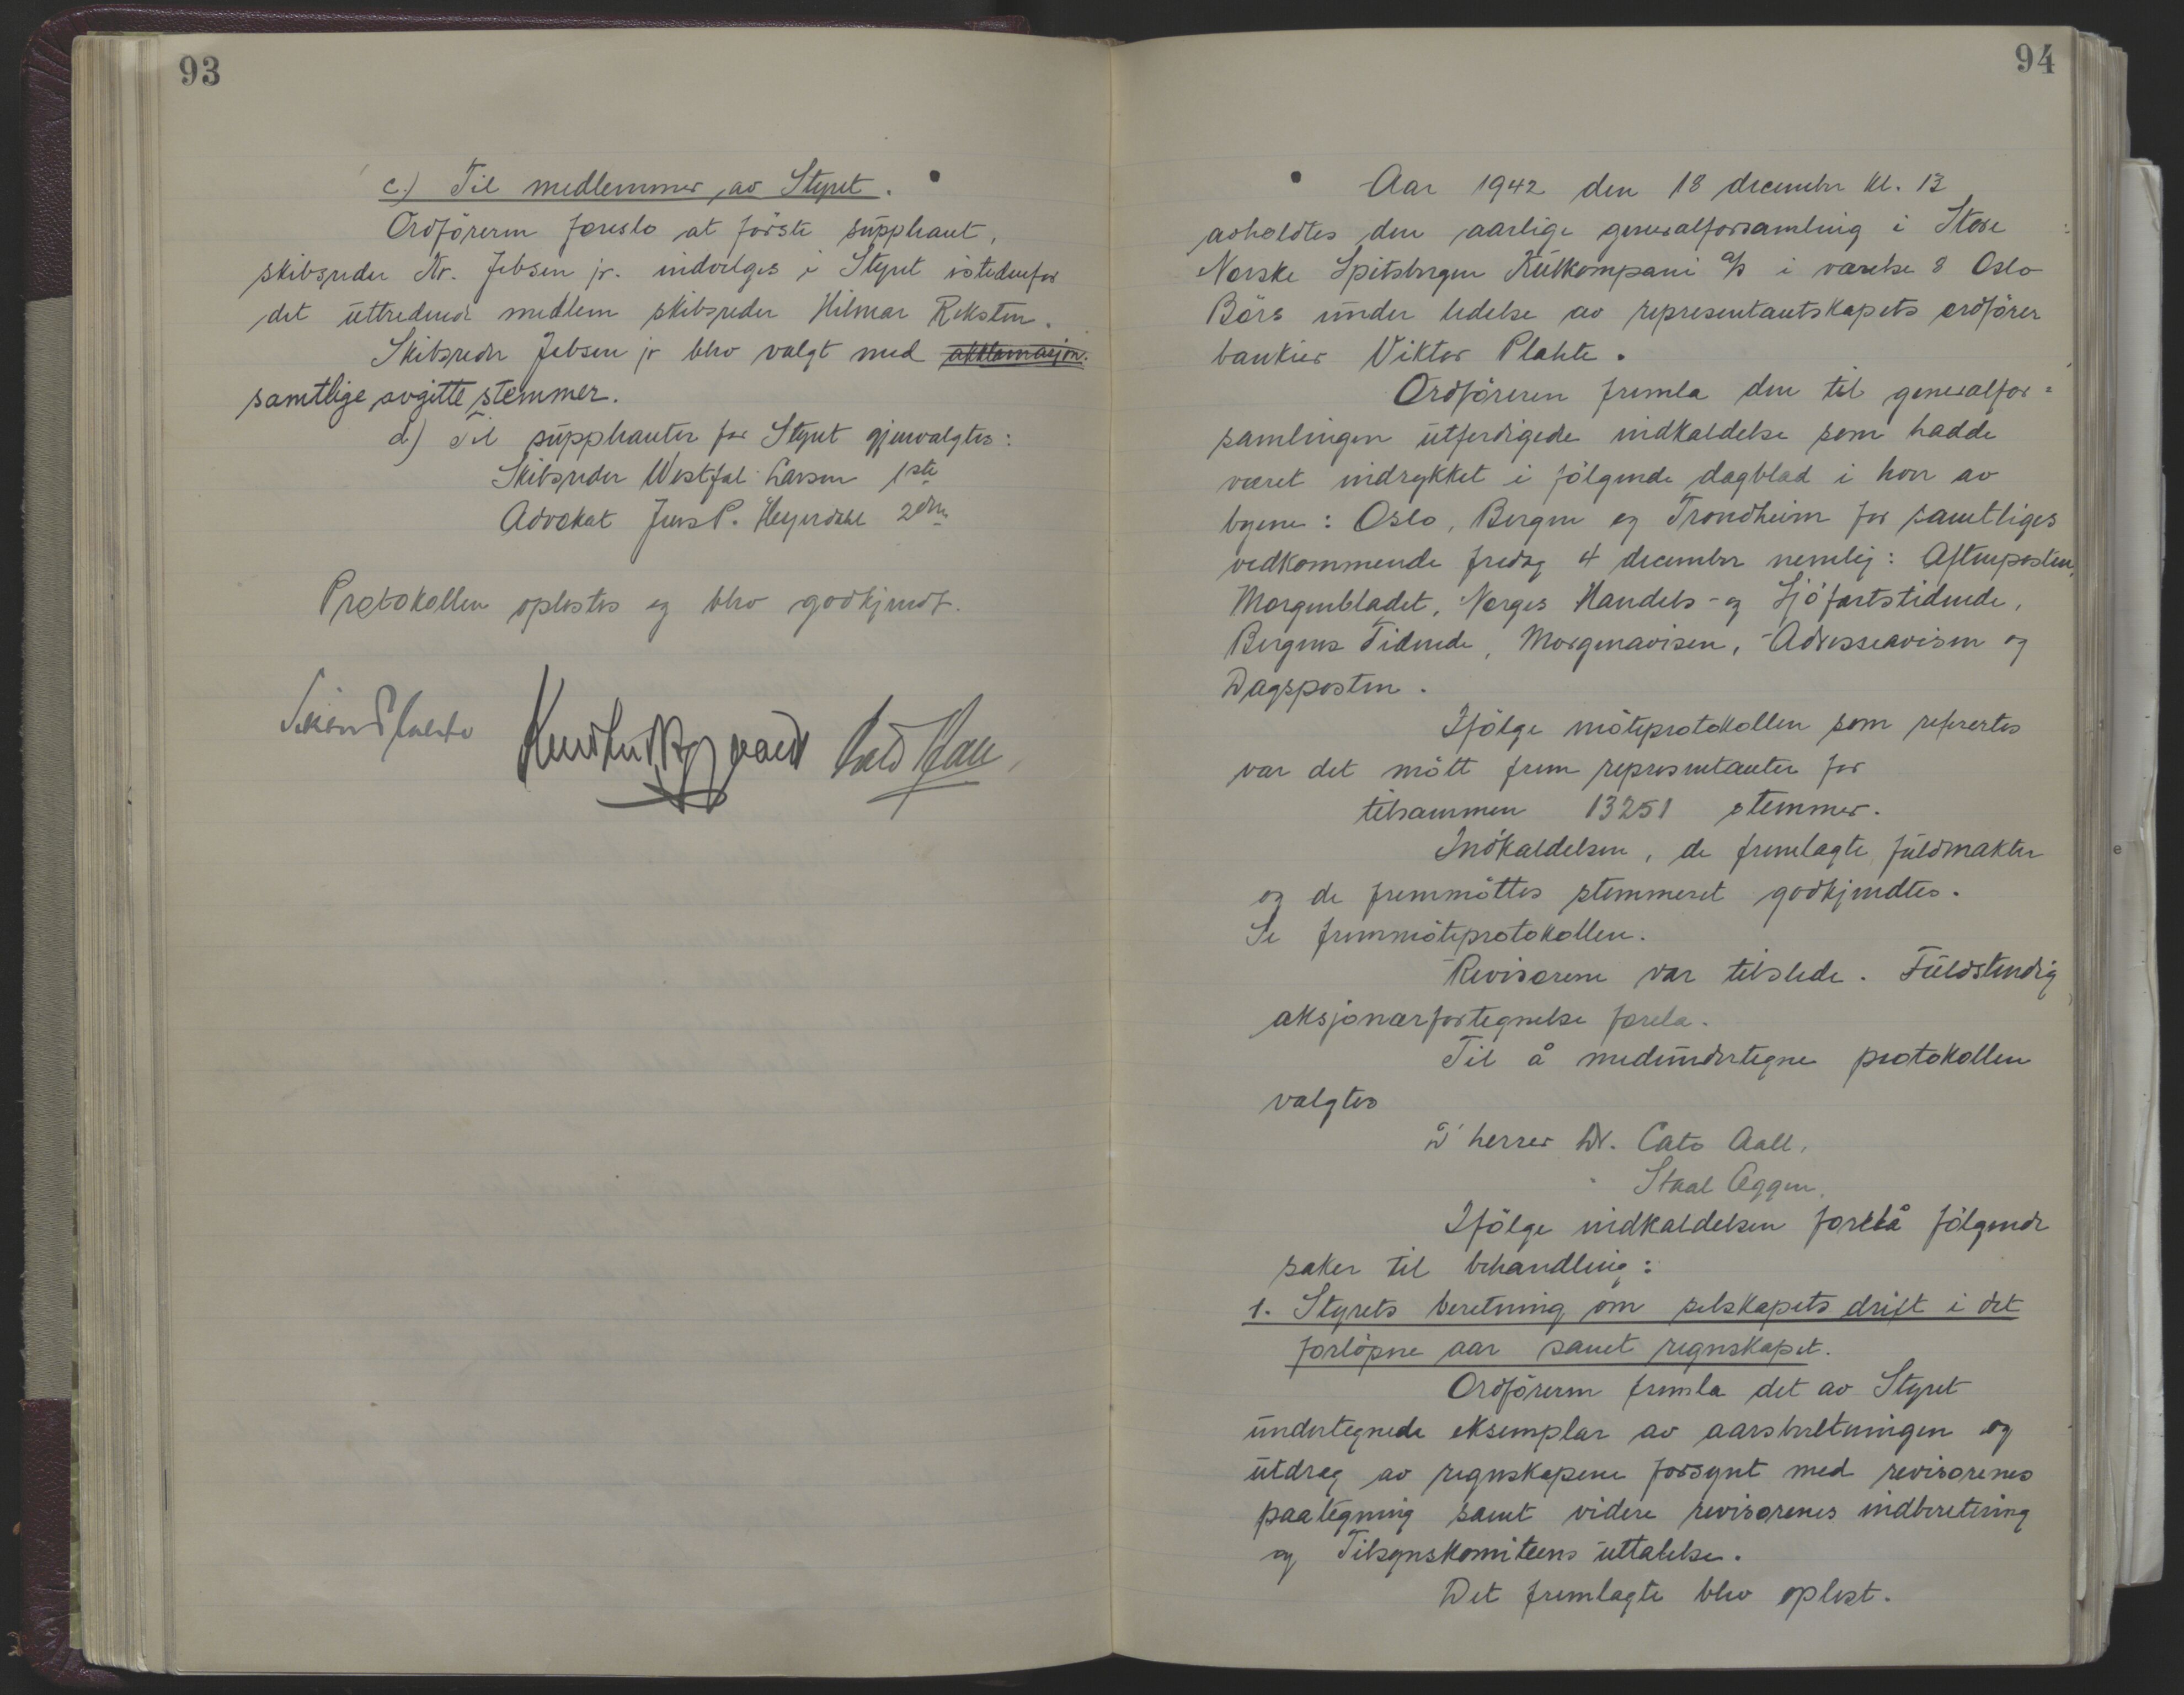 93
c.) Til medlemmer av Styret.
Ordföreren foreslo at förste supphant,
skibsreder Kr. Jebsen jr. indvelges i Styret istedenfor
det uttredende medlem skibsreder Hilmar Reksten.
Skibsreder Jebsen jr blev valgt med akklamasjon.
samtlige avgitte stemmer.
d) Til supphanter for Styret gjenvalgtes:
Skibsreder Westfal-Larsen 1ste
Advokat Jens P. Heyerdahl 2den
Protokollen oplestes og blev godkjendt.
94
Aar 1942 den 18 december kl. 13
avholdtes den aarlige generalforsamling i Store
Norske Spitsbergen Kulkompani a/s i værelse 8 Oslo
Börs under ledelse av representantskapets ordförer
bankier Viktor Plahte.
Ordföreren fremla den til generalfor=
samlingen utferdigede indkaldelse som hadde
været indrykket i fölgende dagblad i hver av
byene: Oslo, Bergen og Trondheim for samtliges
vedkommende fredag 4 december nemlig: Aftenposten,
Morgenbladet, Norges Handels- og Sjöfartstidende,
Bergens Tidende, Morgenavisen, Adresseavisen og
Dagsposten.
Ifölge möteprotokollen som refertes
var det mött frem representanter for
tilsammen 13251 stemmer.
Indkaldelsen, de fremlagte fuldmakter
og de fremmöttes stemmeret godkjendtes.
Se fremmöteprotokollen.
Revisorene var tilstede. Fuldstendig
aksjonærfortegnelse forela.
Til å medundertegne protokollen
valgtes
D'herrer Dr. Cato Aall,
" Staal Eggen,
Ifölge indkaldelsen forelå fölgende
saker til behandling:
1. Styrets beretning om selskapets drift i det
forlöpne aar samt regnskapet.
Ordföreren fremla det av Styret
undertegnede eksemplar av aarsberetningen og
utdrag av regnskapene forsynt med revisorenes
paategning samt videre revisorenes indberetning
og Tilsynskomiteens uttalelse.
Det fremlagte blev oplest.